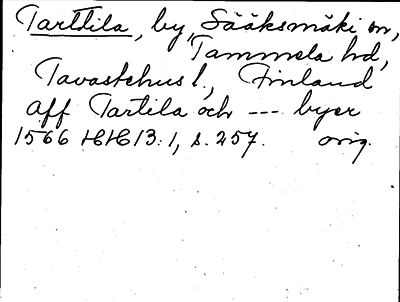 Tarttila, by, Sääksmäki sn,
Tammela hd,
Tavastehus l., Finland
aff Tartila och --- byer
1566 HH 13:1, s. 257. orig.